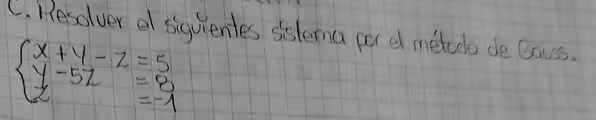 C. Resolver el siguientes sistema por el método de Gauss.
x + y - z = 5
y - 5z = 8
z = -1